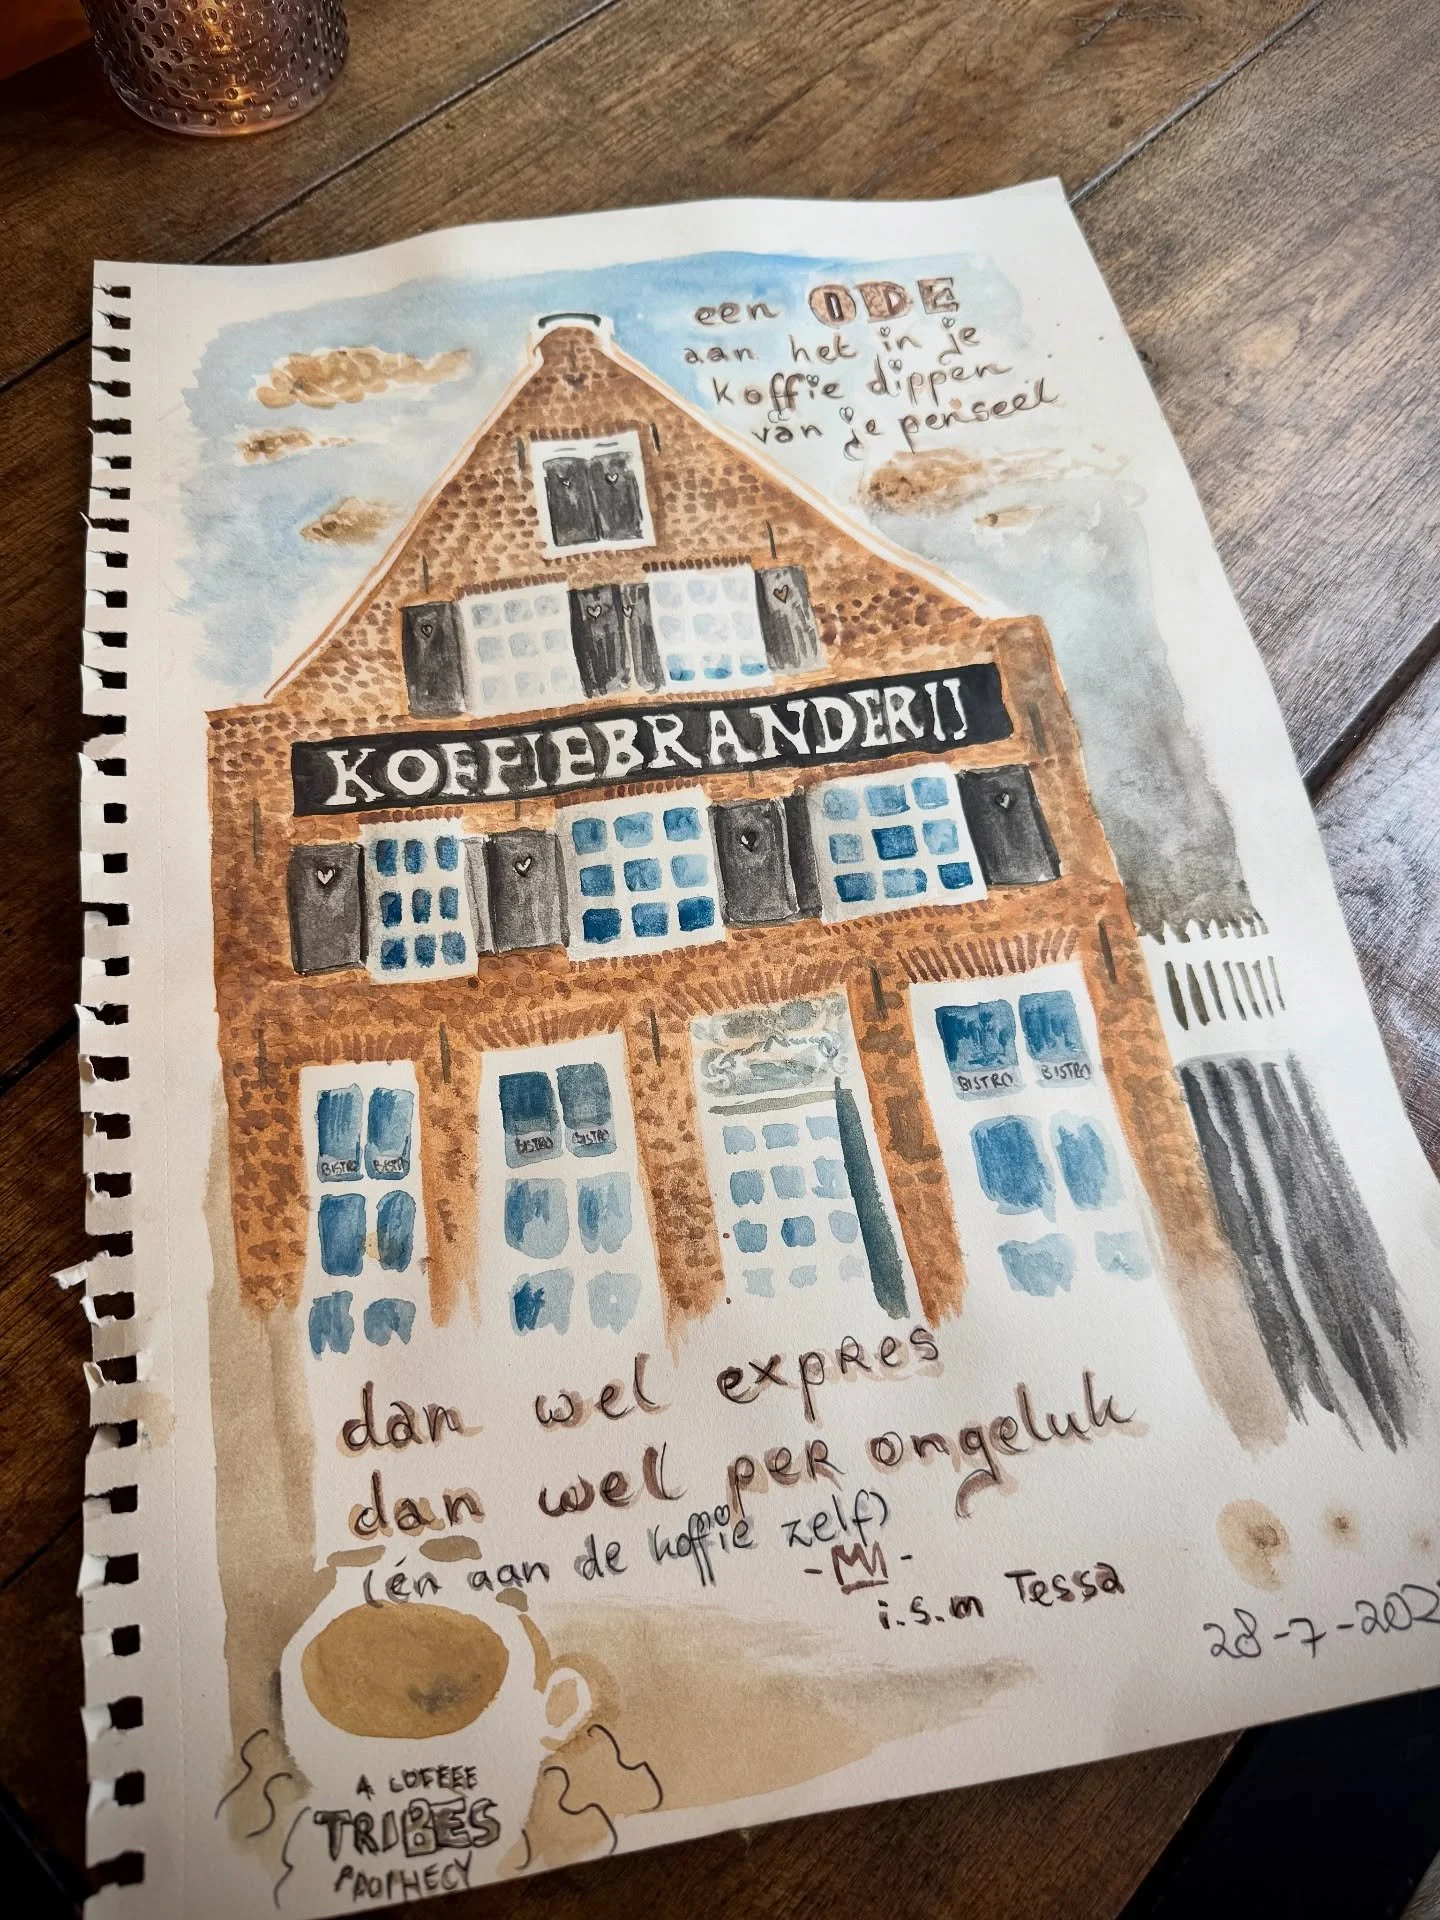 een ODE
aan het in je
koffie dippen
van je penseel
KOFFIEBRANDERIJ
BISTRO BISTRO
BISTRO BISTRO
BISTRO BISTRO
dan wel expres
dan wel per ongeluk
(én aan de koffie zelf)
i.s.m Tessa
28-7-202
A COFFEEE
TRIBES
PROPHECY